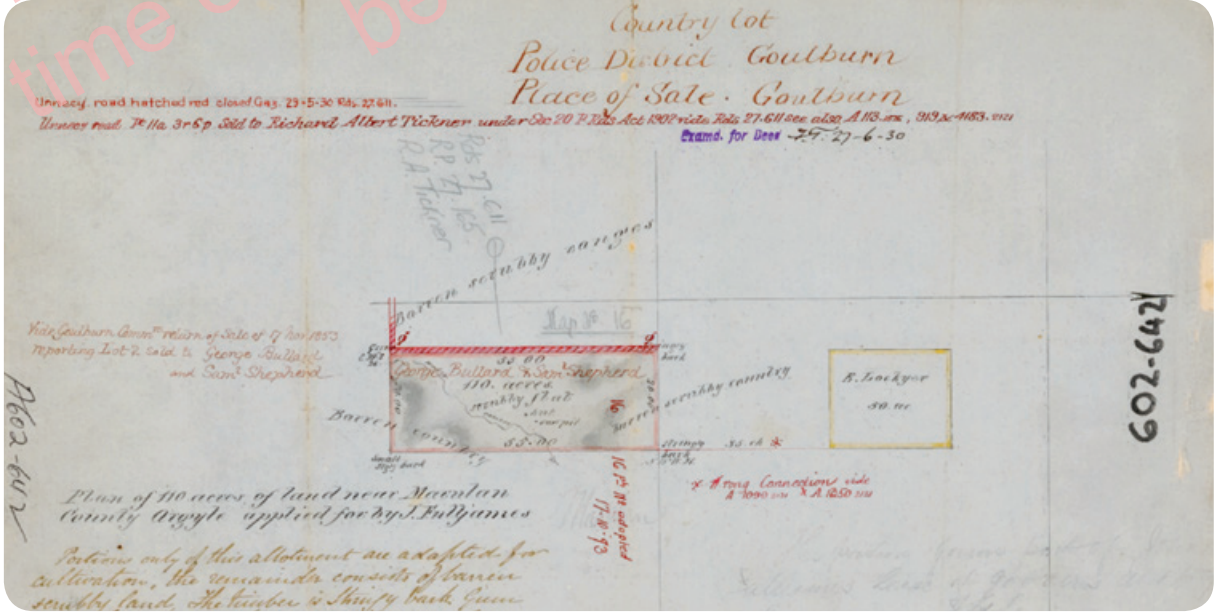 time
be
Country Lot
Police District Goulburn
Place of Sale. Goulburn
Unnecy. road hatched red closed Gaz. 29-5-30 Rds. 27.611.
Unnecs road 11a 3r 6p Sold to Richard Albert Tickner under Sec 20 P. Rds Act 1902 vide Rds 27.611 see also A 113
Examd. for Deed 27-6-30
Rds 27.611
RP. 77.165.
R.A. Tickner
Barren scrubby ranges
Map No 16
Vide Goulburn Commrs return of Sale of 17 Nov 1853
reporting Lot 2 sold to George Bullard
and Saml Shepherd
55.00
George Bullard & Saml Shepherd
110. acres
scrubby flat
hut
sawpit
20.00
16
55.00
Barren scrubby country
Barren country
R. Lockyer
50 ac
stringy
bark
small
bark
602-6424
A602-642
16 adopted
17.10.93
Wrong Connections vide
A 1090 & A 1250
Plan of 110 acres of land near Marulan
County Argyle applied for by J. Fulljames
Portions only of this allotment are adapted for
cultivation, the remainder consists of barren
scrubby land, The timber is Stringy bark Gum